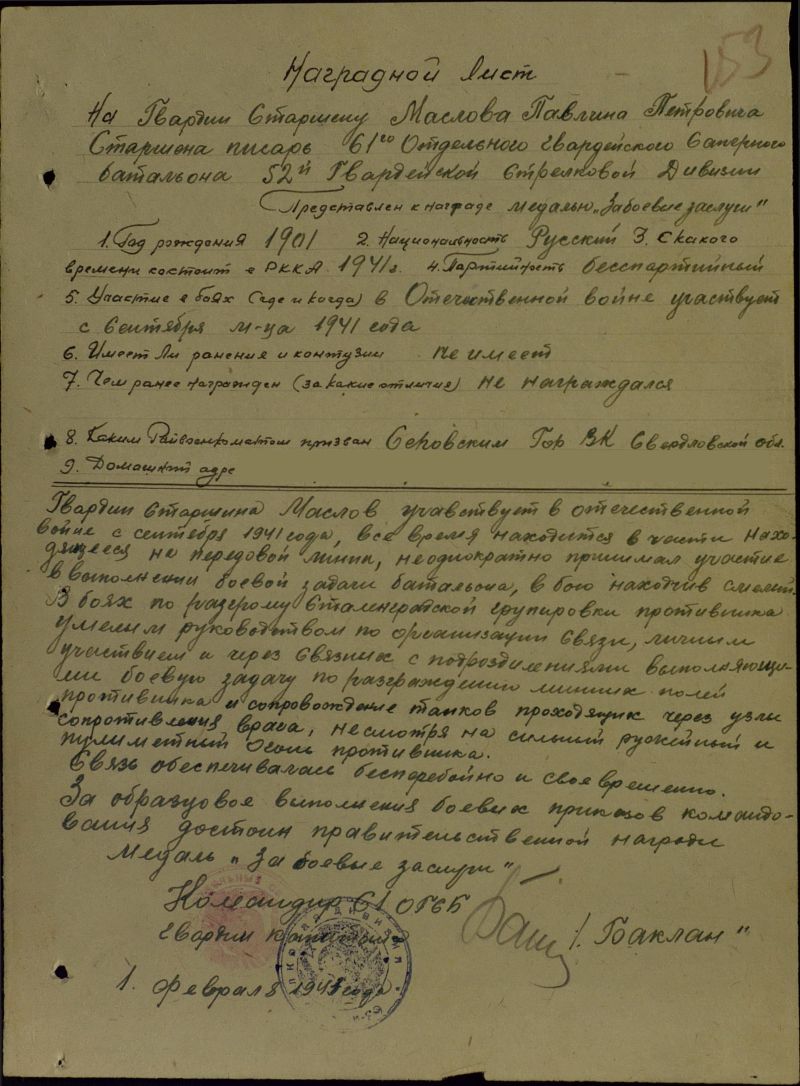 153
Наградной Лист
На Гвардии Старшену Маслова Павлина Петровича
Старшена писарь 61го Отдельного Гвардейского Саперного
батальона 52й Гвардейской Стрелковой Дивизии
Представлен к награде медалью „За боевые заслуги"
1. Год рождения 1901 2. Национальность Русский 3. С какого
времени состоит в РККА 1941г. 4. Партийность беспартийный
5. Участие в боях (где и когда) в Отечественной войне участвует
с Сентября м-ца 1941 года
6. Имеет Ли ранения и контузии не имеет
7. Чем ранее награжден (за какие отличие) не награждался
8. Каким Райвоенкоматом призван Серовским Гор ВК Свердловской обл.
9. Домашний адре
Гвардии старшина Маслов учавствует в отечественной
войне с сентября 1941 года, все время находится в части нахо-
дящееся на передовой линии, неоднократно принимал участие
в выполнении боевой задачи батальона, в бою находчив смелый.
В боях по разгрому Сталинградской групировки противника
умелым руководством по организации связи, личным
участием и через связных с подразделениями выполняющи-
ми боевую задачу по разграждению минных полей
противника и сопровождение танков проходящих через узлы
сопротивления врага, несмотря на сильный ружейный и
пулиметный огонь противника.
Связь обеспечивалась бесперебойно и своевременно.
За образцовое выполнения боевых приказов командо-
вания достоин правительственной награды
Медаль „За боевые заслуги"
Командир 61 ОГСБ
Гвардии капитан
/. Баклан "
1. Февраля 1943 года